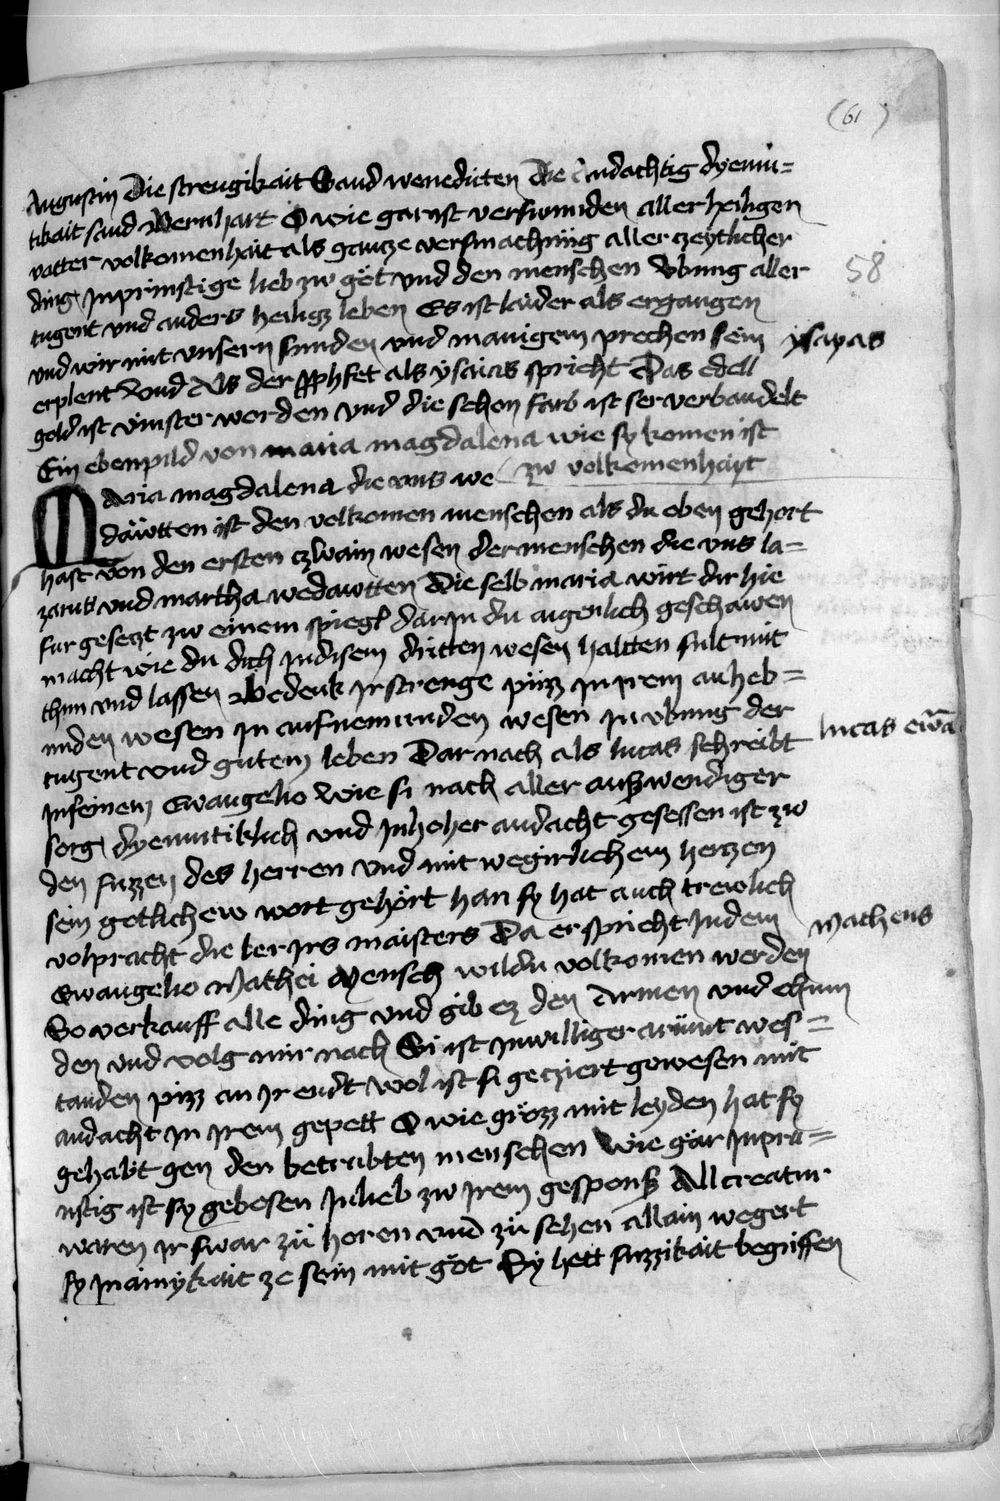 (61)
Augustin Die strengikait Sand wenedicten Die Andachtig dyemu=
tikait sand Bernhart O wie gar ist verswunden aller heiligen
vatter volkomenhait als gancze versmachung aller czeytlicher
ding Inprunstige lieb zw got vnd den menschen Vbung aller
58
tugent vnd anders heiligs leben Es ist laider als ergangen
vnd wir mit vnsern sunden vnd manigem prechen sein
ysayas
erplent Vnd Als der prophet als ysaias spricht Das edell
gold ist vinster worden vnd die schon farb ist ser verbandelt
Ein ebenpild von maria magdalena wie sy komen ist
zw volkomenhayt
Maria magdalena die vns we
dawtten ist den volkomen menschen als du oben gehort
hast von den ersten czwain wesen der menschen die vns la=
zarus vnd martha wedawtten Die selb maria wirt dir hie
fur geseczt zw einem spiegl darIn du aigenlich geschawen
macht wie du dich In disem dritten wesen haltten sult mit
thun vnd lassen Bedenk Ir strenge puzz In Irem anheb=
unden wesen In aufnemunden wesen In vbung der
lucas ewa
tugent vnd gutem leben Dar nach als lucas schreibt
In seinem Ewangelio Wie si nach aller auswendiger
sorg dyemutiklich vnd In hoher andacht gesessen ist zw
den fuzzen des herren vnd mit wegirlichem herczen
sein gotlichew wort gehort han sy hat auch trewlich
volpracht die ler Irs maisters Da er spricht In dem
Matheus
Ewangelio Mathei Mensch wildu volkomen werden
So verkauff alle ding vnd gib ez den Armen vnd chum
den vnd volg mir nach Si ist In williger armut wes=
tanden pizz an Ir endt wol ist si gecziert gewesen mit
andacht In Irem gepett O wie grozz mit leyden hat sy
gehabt gen den betrubten menschen Wie gar Inpru=
nstig ist sy gebesen In lieb zw Irem gespons All creatur
waren Ir swar zu horen vnd zu sehen allain wegert
sy In ainykait ze sein mit got Sy hett suzzikait begriffen